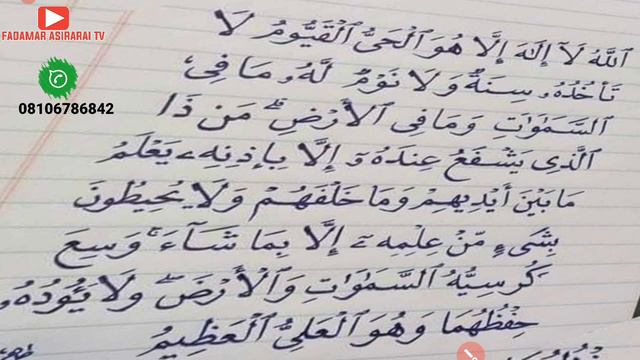 FADAMAR ASIRARAI TV
08106786842
ٱللَّهُ لَآ إِلَٰهَ إِلَّا هُوَ ٱلْحَىُّ ٱلْقَيُّومُ لَا
تَأْخُذُهُۥ سِنَةٌ وَلَا نَوْمٌ لَّهُۥ مَا فِى
ٱلسَّمَٰوَٰتِ وَمَا فِى ٱلْأَرْضِ ۗ مَن ذَا
ٱلَّذِى يَشْفَعُ عِندَهُۥٓ إِلَّا بِإِذْنِهِۦ يَعْلَمُ
مَا بَيْنَ أَيْدِيهِمْ وَمَا خَلْفَهُمْ وَلَا يُحِيطُونَ
بِشَىْءٍ مِّنْ عِلْمِهِۦٓ إِلَّا بِمَا شَآءَ ۚ وَسِعَ
كُرْسِيُّهُ ٱلسَّمَٰوَٰتِ وَٱلْأَرْضَ ۖ وَلَا يَـُٔودُهُۥ
حِفْظُهُمَا وَهُوَ ٱلْعَلِىُّ ٱلْعَظِيمُ